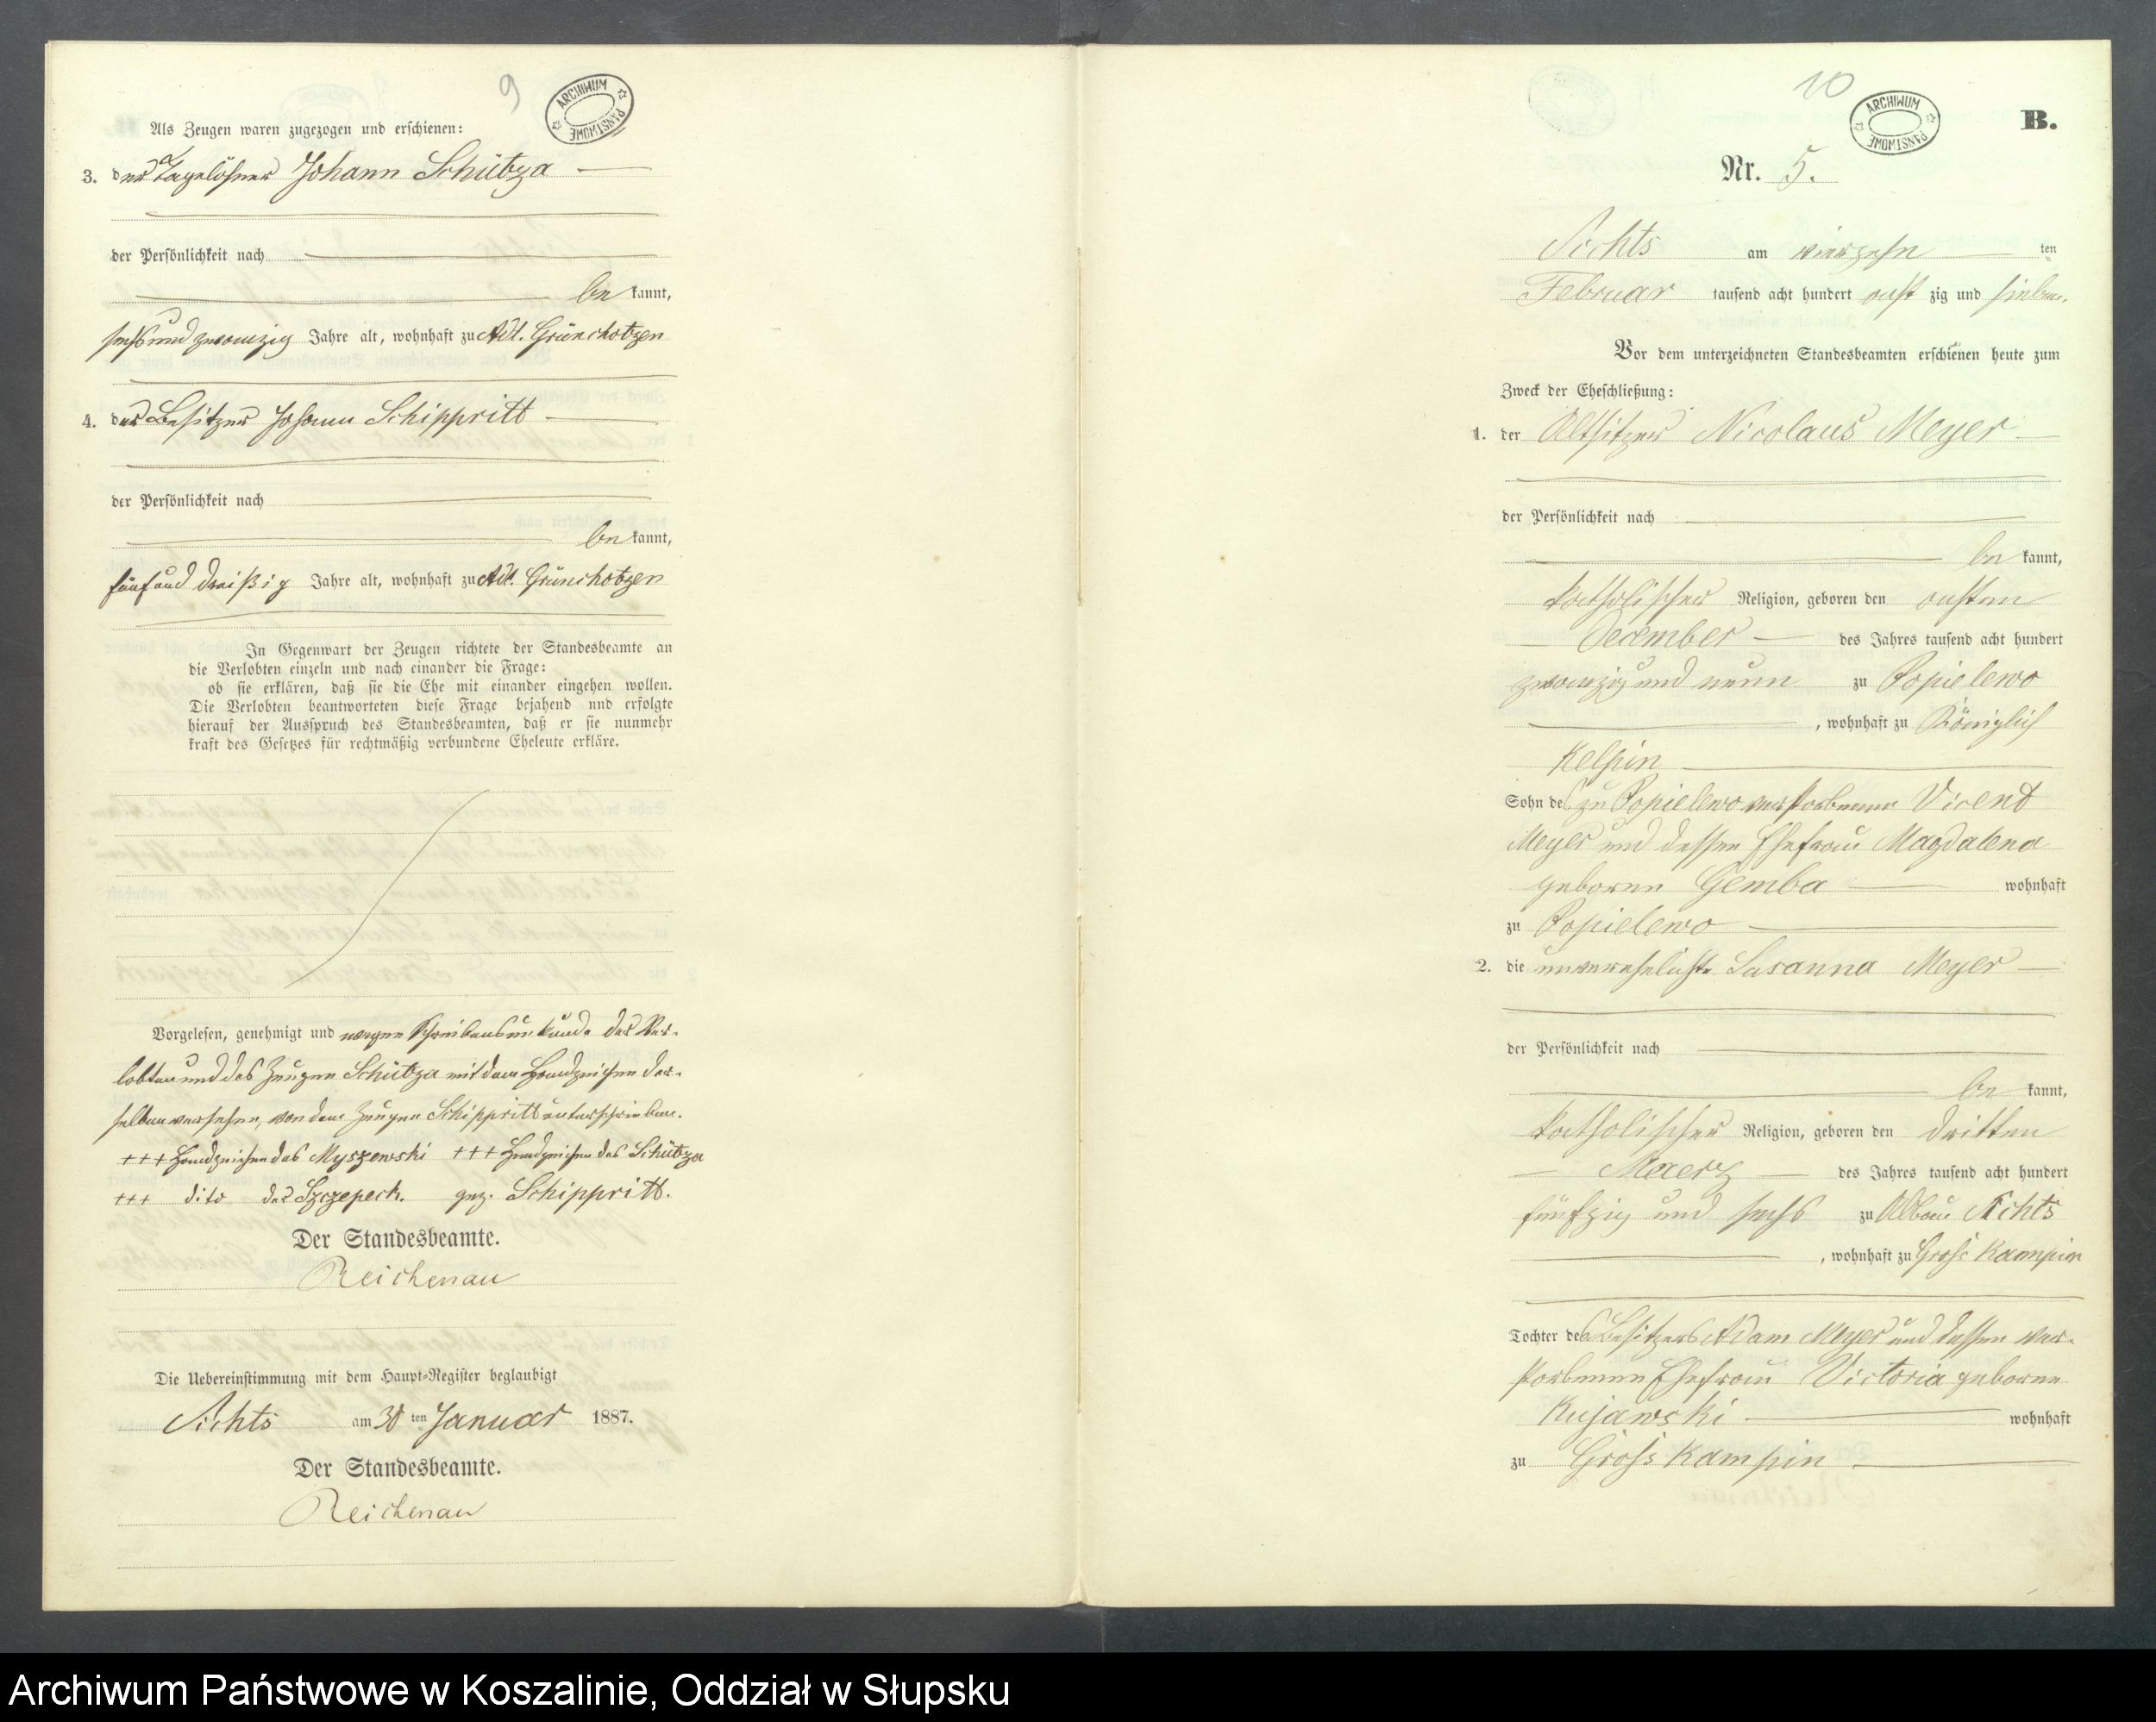 9
ARCHIWUM PAŃSTWOWE
Als Zeugen waren zugezogen und erschienen:
3. der Tagelöhner Johann Schützа
der Persönlichkeit nach
be kannt,
sechs und zwanzig Jahre alt, wohnhaft zu Adl. Grünchotzen
4. der Besitzer Johann Schippritt
der Persönlichkeit nach
be kannt,
fünf und dreißig Jahre alt, wohnhaft zu Adl. Grünchotzen
In Gegenwart der Zeugen richtete der Standesbeamte an
die Verlobten einzeln und nach einander die Frage:
ob sie erklären, daß sie die Ehe mit einander eingehen wollen.
Die Verlobten beantworteten diese Frage bejahend und erfolgte
hierauf der Ausspruch des Standesbeamten, daß er sie nunmehr
kraft des Gesetzes für rechtmäßig verbundene Eheleute erkläre.
Vorgelesen, genehmigt und wegen Schreibensunkunde der Ver-
lobten und des Zeugen Schütza mit dem Handzeichen der-
selben versehen, von dem Zeugen Schippritt unterschrieben.
+++ Handzeichen des Myszewski +++ Handzeichen des Schütza
+++ dito der Szczepeck. gez. Schippritt.
Der Standesbeamte.
Reichenau
Die Uebereinstimmung mit dem Haupt-Register beglaubigt
Sichts am 30 ten Januar 1887.
Der Standesbeamte.
Reichenau
10
ARCHIWUM PAŃSTWOWE
B.
Nr. 5.
Sichts am vierzehn ten
Februar tausend acht hundert acht zig und sieben.
Vor dem unterzeichneten Standesbeamten erschienen heute zum
Zweck der Eheschließung:
1. der Altsitzer Nicolaus Meyer
der Persönlichkeit nach
be kannt,
katholischer Religion, geboren den achten
December des Jahres tausend acht hundert
zwanzig und neun zu Popielewo
, wohnhaft zu Königlich
Kelpin
Sohn des zu Popielewo verstorbenen Vicent
Meyer und dessen Ehefrau Magdalena
geborne Gemba wohnhaft
zu Popielewo
2. die unverehelichte Susanna Meyer
der Persönlichkeit nach
be kannt,
katholischer Religion, geboren den dritten
Maerz des Jahres tausend acht hundert
fünfzig und sechs zu Abbau Sichts
, wohnhaft zu Gross Kampin
Tochter des Besitzers Adam Meyer und dessen ver-
storbenen Ehefrau Victoria geborne
Kujawski wohnhaft
zu Gross Kampin
Archiwum Państwowe w Koszalinie, Oddział w Słupsku